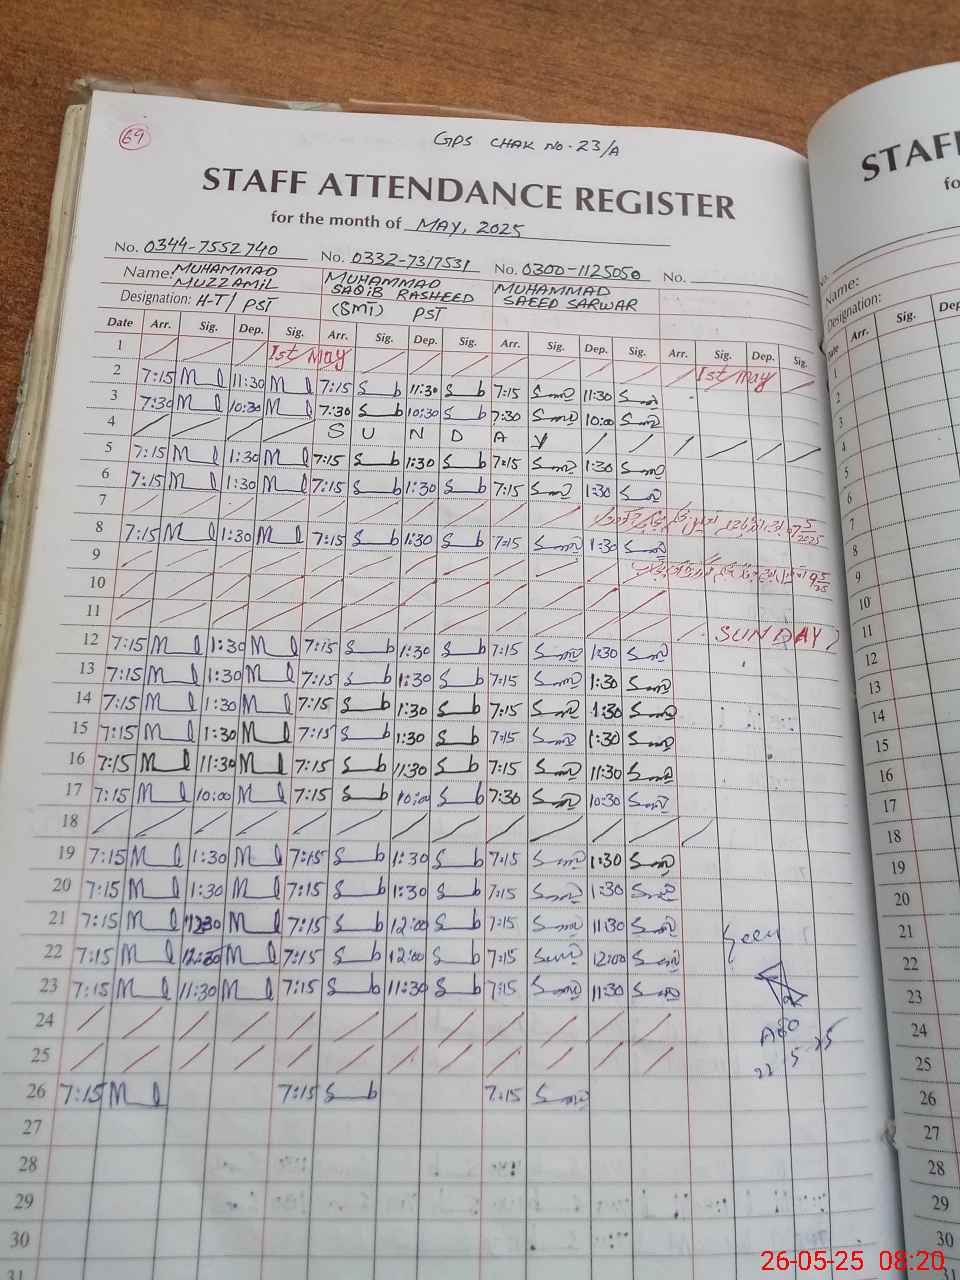 69
GPS CHAK NO. 23/A
STAFF ATTENDANCE REGISTER
for the month of MAY, 2025
No. 0344-7552740 No. 0332-7317531 No. 0300-1125050 No.
Name: MUHAMMAD MUZZAMIL MUHAMMAD SAQIB RASHEED MUHAMMAD SAEED SARWAR
Designation: H-T/ PST (SMT) PST
Date Arr. Sig. Dep. Sig. Arr. Sig. Dep. Sig. Arr. Sig. Dep. Sig. Arr. Sig. Dep. Sig.
1 1st May 1st May
2 7:15 11:30 7:15 11:30 7:15 11:30
3 7:30 10:30 7:30 10:30 7:30 10:00
4 S U N D A Y
5 7:15 1:30 7:15 1:30 7:15 1:30
6 7:15 1:30 7:15 1:30 7:15 1:30
7
8 7:15 1:30 7:15 1:30 7:15 1:30
9
10
11 SUNDAY
12 7:15 1:30 7:15 1:30 7:15 1:30
13 7:15 1:30 7:15 1:30 7:15 1:30
14 7:15 1:30 7:15 1:30 7:15 1:30
15 7:15 1:30 7:15 1:30 7:15 1:30
16 7:15 11:30 7:15 11:30 7:15 11:30
17 7:15 10:00 7:15 10:00 7:30 10:30
18
19 7:15 1:30 7:15 1:30 7:15 1:30
20 7:15 1:30 7:15 1:30 7:15 1:30
21 7:15 7:15 12:00 7:15 11:30
22 7:15 12:30 7:15 12:00 7:15 12:00
Seen
23 7:15 11:30 7:15 11:30 7:15 11:30
24
25
22 5 25
26 7:15 7:15 7:15
27
28
29
30
31
STAFF
fo
No.
Name:
Designation:
Date Arr. Sig. Dep
1
2
3
4
5
6
7
8
9
10
11
12
13
14
15
16
17
18
19
20
21
22
23
24
25
26
27
28
29
30
31
26-05-25 08:20